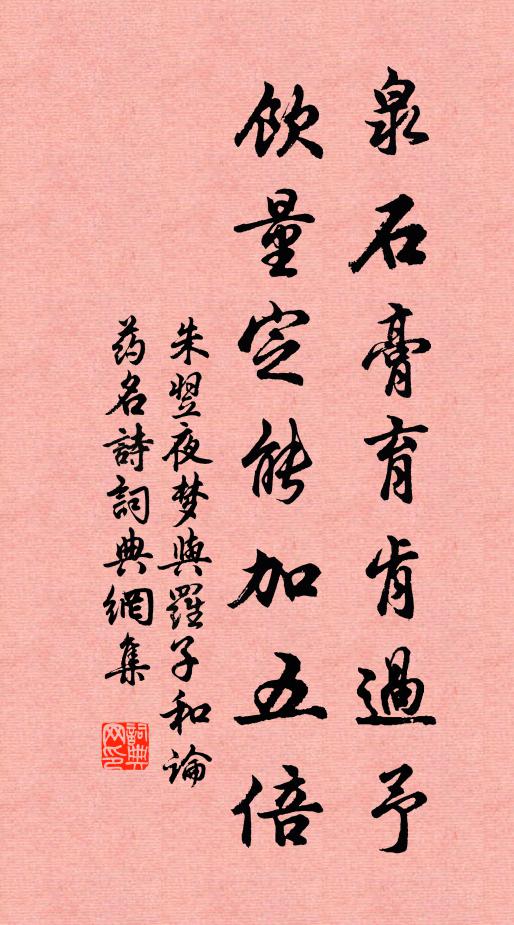 泉石膏育肯過予
飲量定能加五倍
朱翌夜梦與羅子和論
药名詩詞典網集
詞典
网印